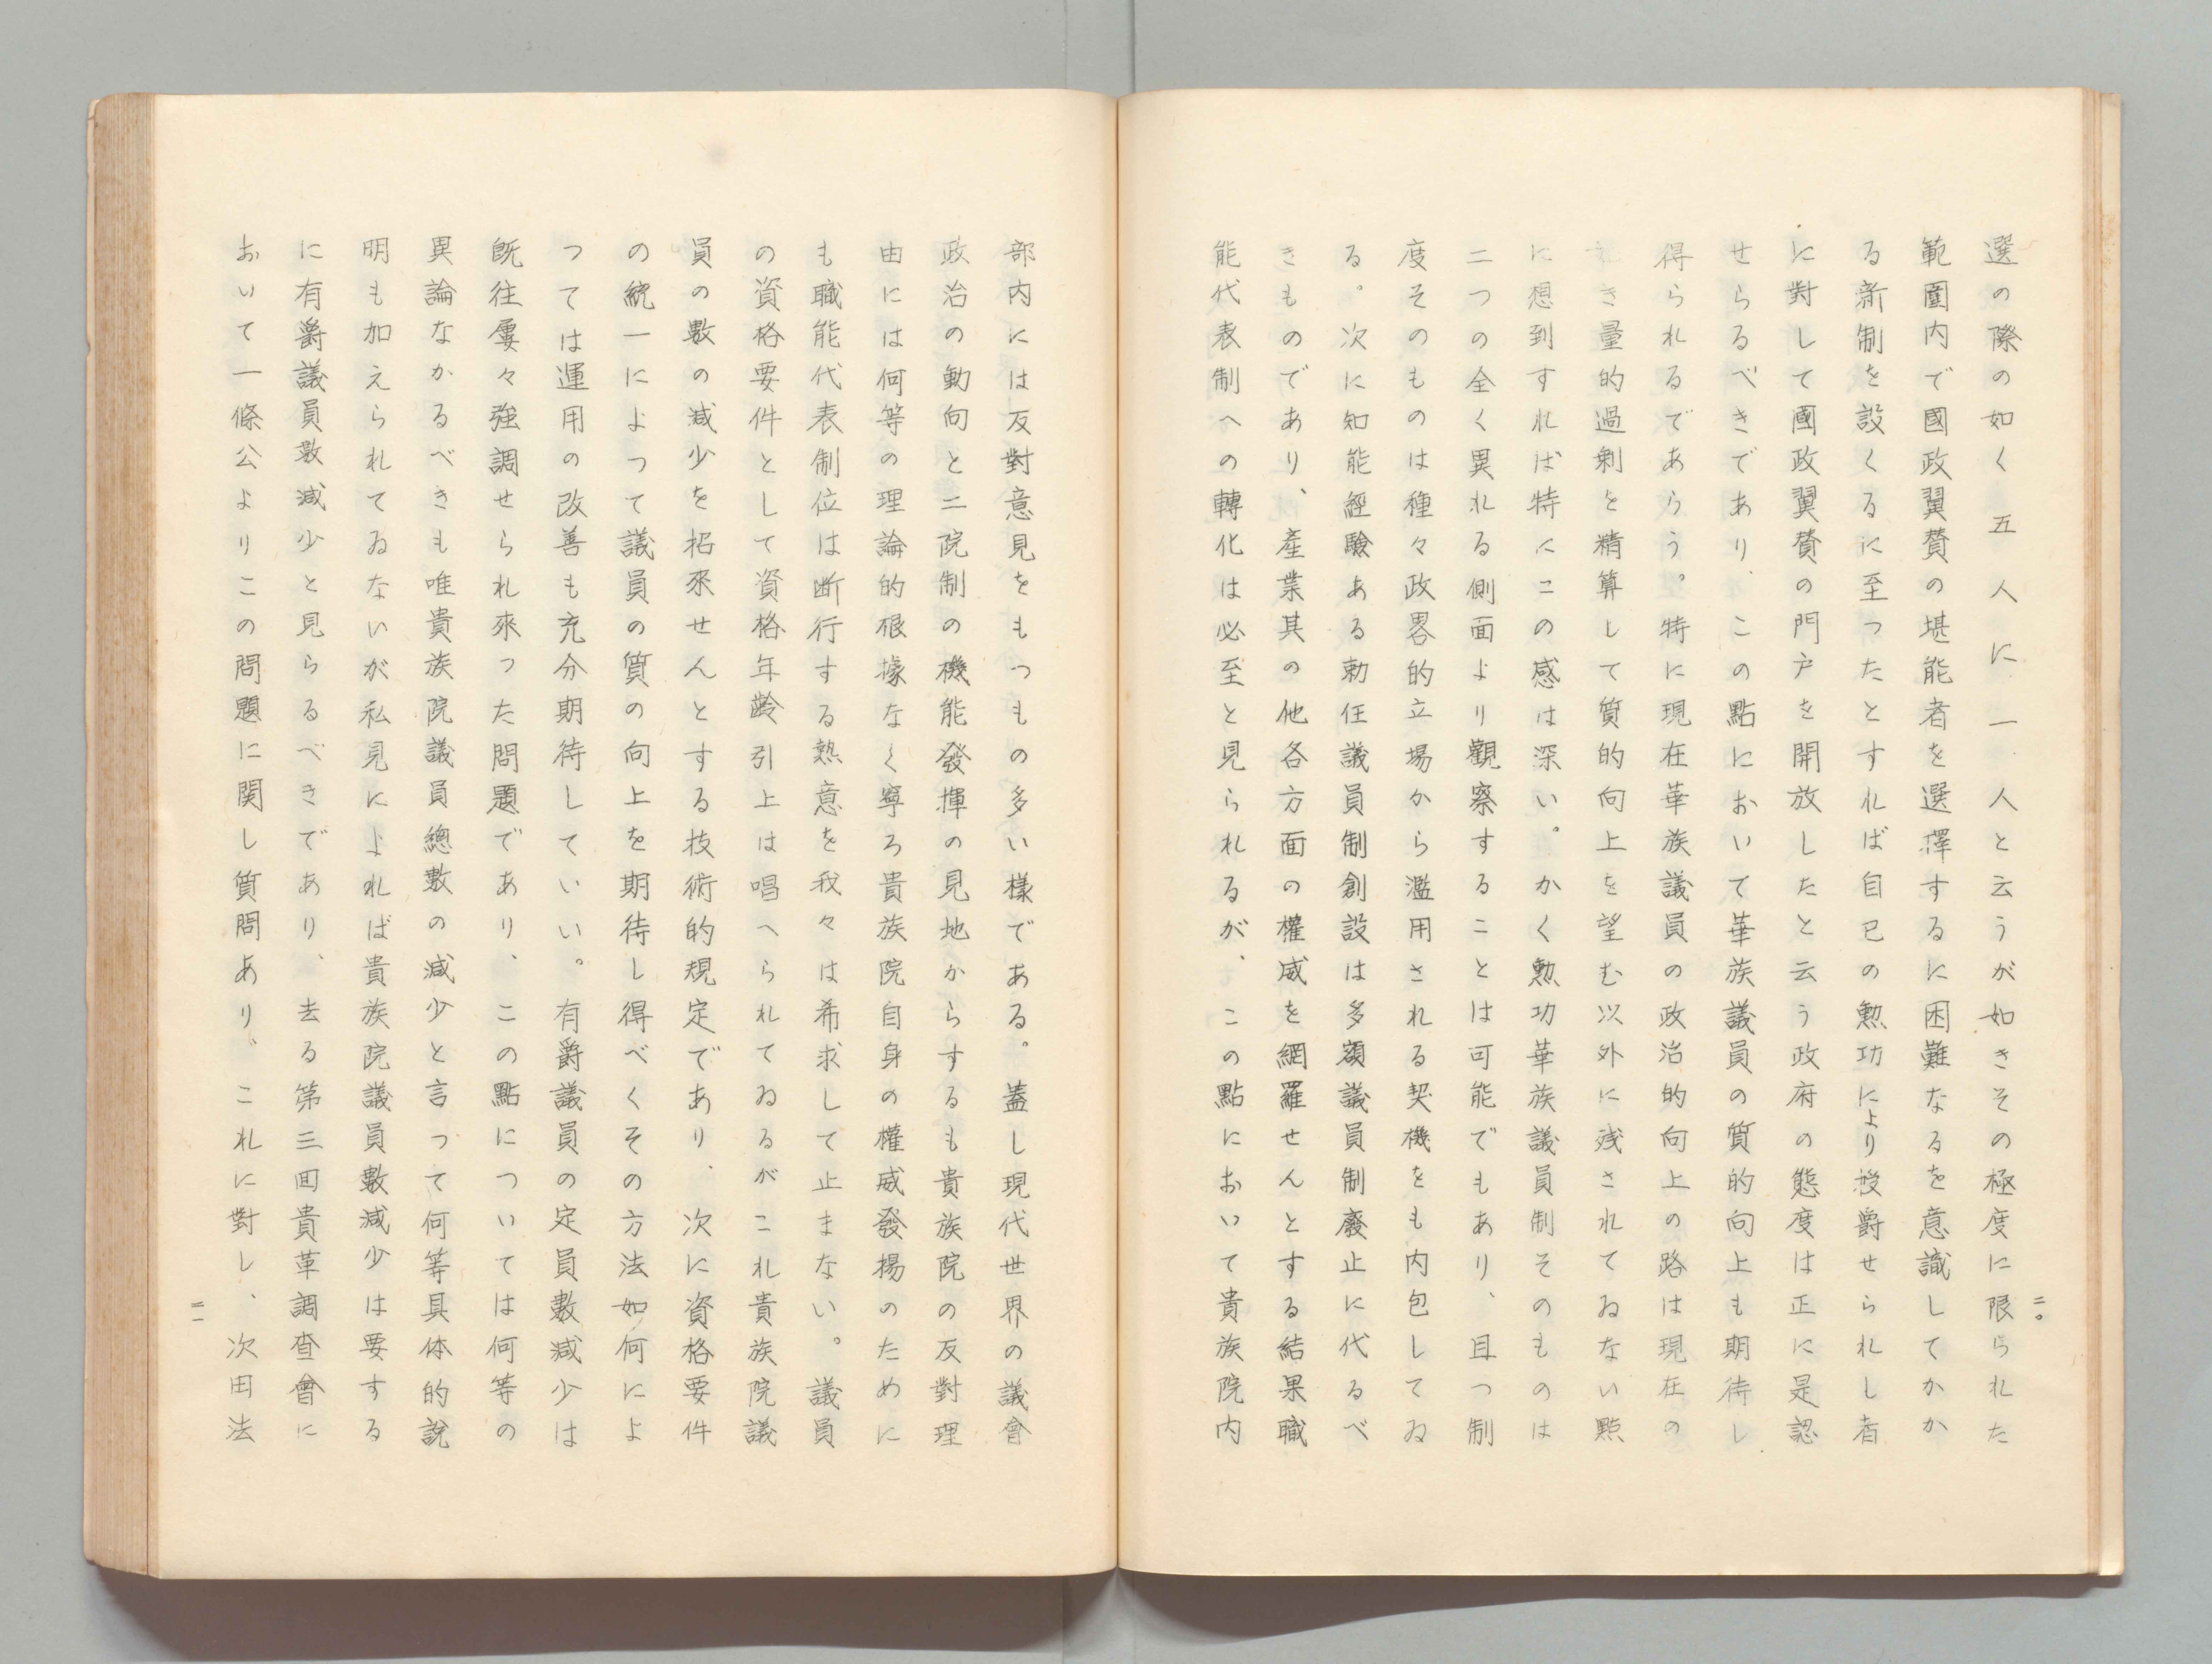 二〇
選の際の如く五人に一人と云うが如きその極度に限られた
範圍内で國政翼賛の堪能者を選擇するに困難なるを意識してかか
る新制を設くるに至つたとすれば自己の勲功により授爵せられし者
に對して國政翼賛の門戸を開放したと云う政府の態度は正に是認
せらるべきであり、この點において華族議員の質的向上も期待し
得られるであらう。特に現在華族議員の政治的向上の路は現在の
き量的過剰を精算して質的向上を望む以外に残されてゐない點
に想到すれば特にこの感は深い。かく勲功華族議員制そのものは
二つの全く異れる側面より觀察することは可能でもあり、且つ制
度そのものは種々政畧的立場から濫用される契機をも内包してゐ
る。次に知能經驗ある勅任議員制創設は多額議員制廢止に代るべ
きものであり、産業其の他各方面の權威を網羅せんとする結果職
能代表制への轉化は必至と見られるが、この點において貴族院内
部内には反對意見をもつもの多い樣である。蓋し現代世界の議會
政治の動向と二院制の機能發揮の見地からするも貴族院の反對理
由には何等の理論的根據なく寧ろ貴族院自身の權威發揚のために
も職能代表制位は断行する熱意を我々は希求して止まない。議員
の資格要件として資格年齢引上は唱へられてゐるがこれ貴族院議
員の數の減少を招來せんとする技術的規定であり、次に資格要件
の統一によつて議員の質の向上を期待し得べくその方法如何によ
つては運用の改善も充分期待していい。有爵議員の定員數減少は
既往屢々強調せられ來つた問題であり、この點については何等の
異論なかるべきも唯貴族院議員總數の減少と言つて何等具体的說
明も加えられてゐないが私見によれば貴族院議員數減少は要する
に有爵議員數減少と見らるべきであり、去る第三回貴革調査會に
おいて一條公よりこの問題に関し質問あり、これに對し、次田法
二一